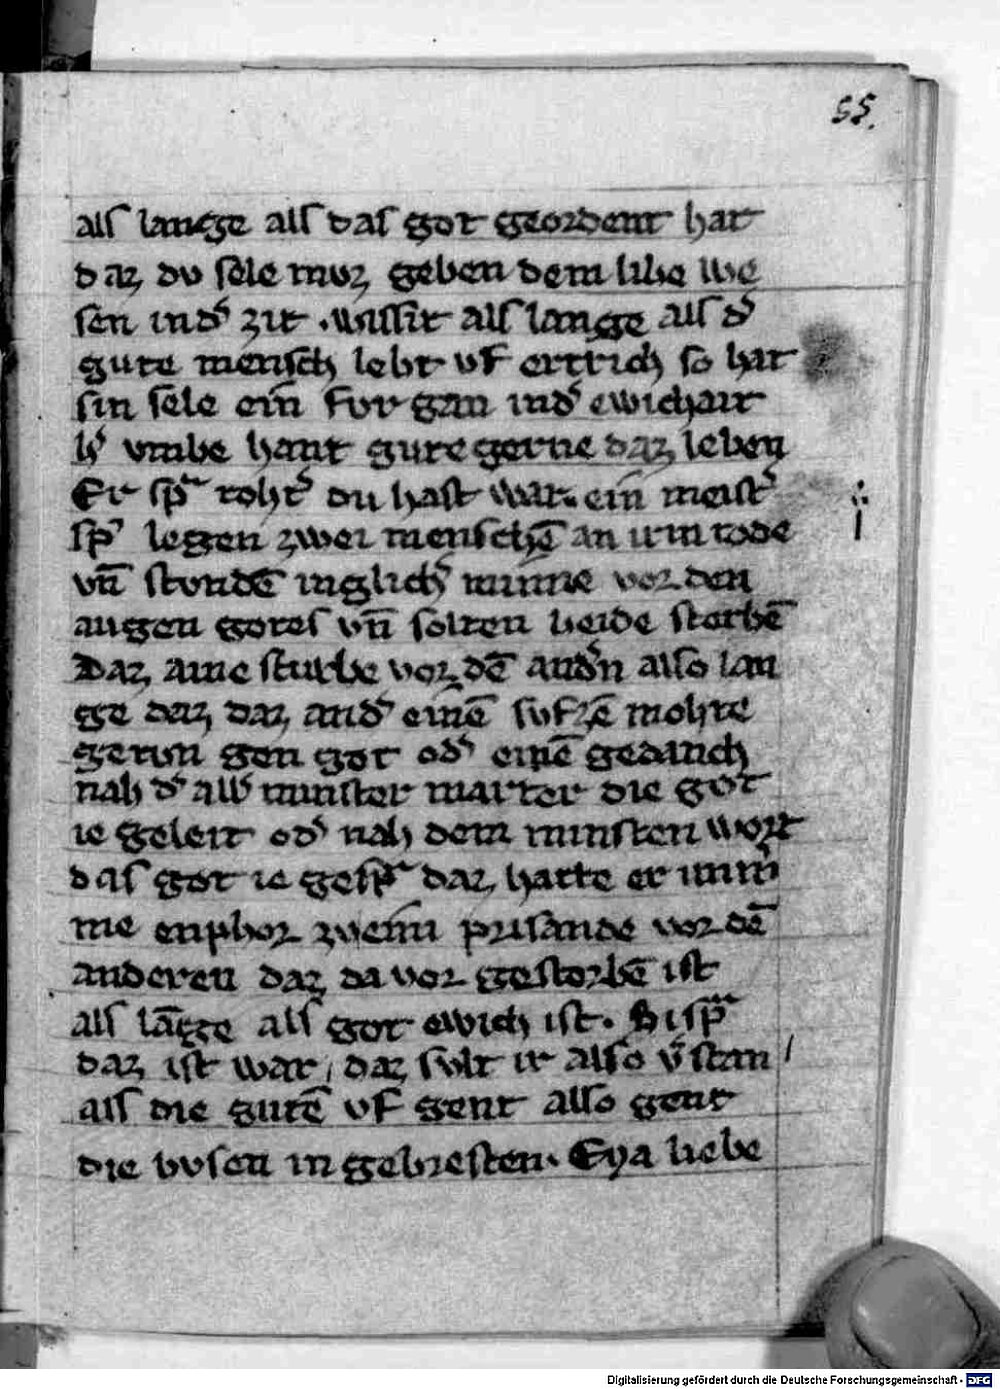 55.
als lange als das got geordent hat
daz du sele muz geben dem libe we
sen in d͛ zit . wissit als lange als d͛
gute mensch lebt uf ertrich so hat
sin sele ein̄ fur gan in d͛ ewichait
umbe hant gute gerne daz leben
Er sp͛ toht͛ du hast war. ein meist͛
sp͛ legen zwei menschē an irm tode
vn̄ stundē in glich͛ minne vor den
augen gotes vn̄ solten beide sterbē
Daz aine sturbe vor dē and͛n also lan
ge daz daz and͛ einē sufzē mohte
getun gen got od͛ einē gedanch
nah d͛ all͛ minster marter die got
ie geleit od͛ nah dem minsten wort
das got ie gesp͛ daz hatte er
me enphor vor dē
anderen daz da vor gestorbē ist
als lāge als got ewich ist. Si sp͛
daz ist war / daz sult ir also v͛stan /
als die gutē uf gent also gent
die busen in gebresten. Eya liebe
Digitalisierung gefördert durch die Deutsche Forschungsgemeinschaft - DFG